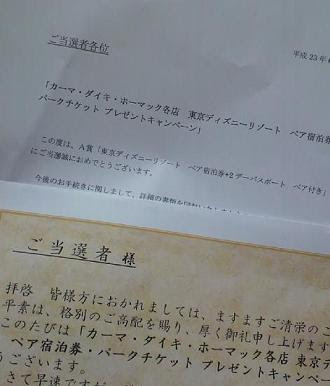 ご当選者各位
平成23年
「カーマ・ダイキ・ホーマック各店 東京ディズニーリゾート ペア宿泊券
パークチケット プレゼントキャンペーン」
この度は、A賞「東京ディズニーリゾート ペア宿泊券+2デーパスポート ペア付き」
にご当選誠におめでとうございます。
今後のお手続きに関しまして、詳細の書類を
ご当選者様
拝啓 皆様方におかれましては、ますますご清栄のこ
平素は、格別のご高配を賜り、厚く御礼申し上げます
このたびは「カーマ・ダイキ・ホーマック各店 東京デ
ペア宿泊券・パークチケット プレゼントキャンペ
うございます。
さて早速ですが